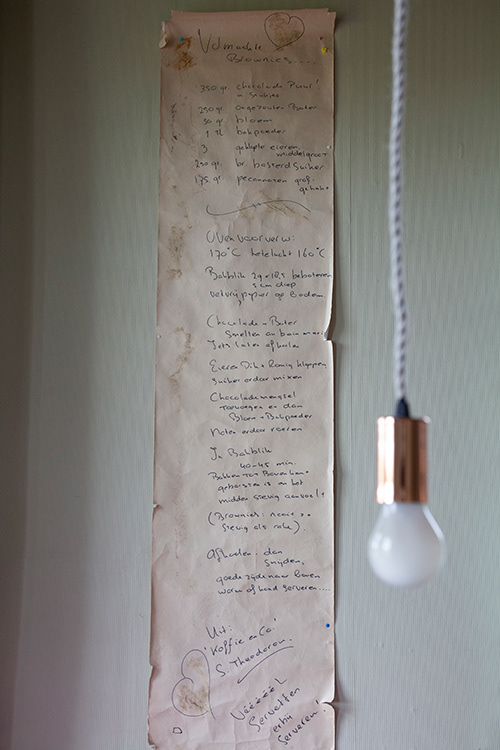 Volmaakte
Brownies....
350 gr. chocolade Puur!
in stukjes
250 gr. ongezouten Boter
50 gr. bloem
1 tl bakpoeder
3 geklopte eieren,
middelgroot
250 gr. br basterdsuiker
175 gr. pecannoten grof
gehakt
Oven voorverw:
170°C hetelucht 160°C
Bakblik 29 beboteren
5 cm diep
vetvrij papier op Bodem
Chocolade + Boter
Smelten au bain marie
Iets laten afkoelen
Eieren Dik + Romig kloppen
Suiker erdoor mixen
Chocolademengsel
toevoegen en dan
Bloem + Bakpoeder
Noten erdoor roeren
In Bakblik
40-45 min.
Bakken tot Bovenkant
gebarsten is en het
midden stevig aanvoelt
(Brownies: nooit zo
stevig als cake).
Afkoelen. dan
Snijden,
goede zijde naar boven
warm of koud serveren....
Uit:
'Koffie en Co.'
S. Theodorou.
Vééééél
Servetten
erbij
Serveren!